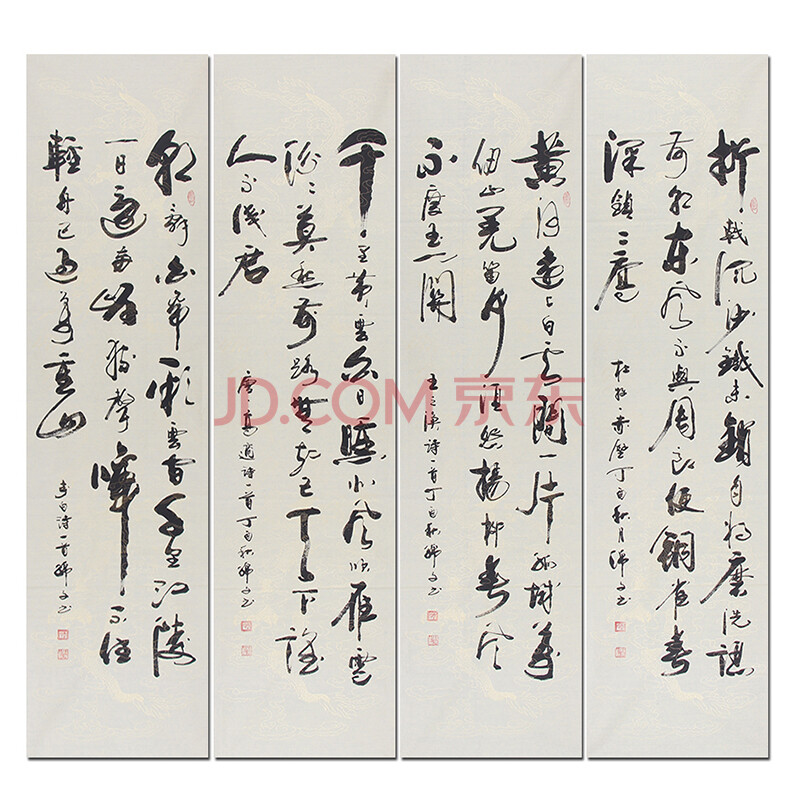 折戟沉沙鐵未銷自將磨洗認
前朝東風不與周郎便銅雀春
深鎖二喬
杜牧·赤壁丁酉秋月
黃河遠上白雲間一片孤城萬
仞山羌笛何須怨楊柳春風
不度玉門關
王之渙詩一首丁酉秋
千里黃雲白日曛北風吹雁雪
紛紛莫愁前路無知己天下誰
人不識君
唐高適詩一首丁酉秋
朝辭白帝彩雲間千里江陵
一日還兩岸猿聲啼不住
輕舟已過萬重山
李白詩一首
JD.COM 京东